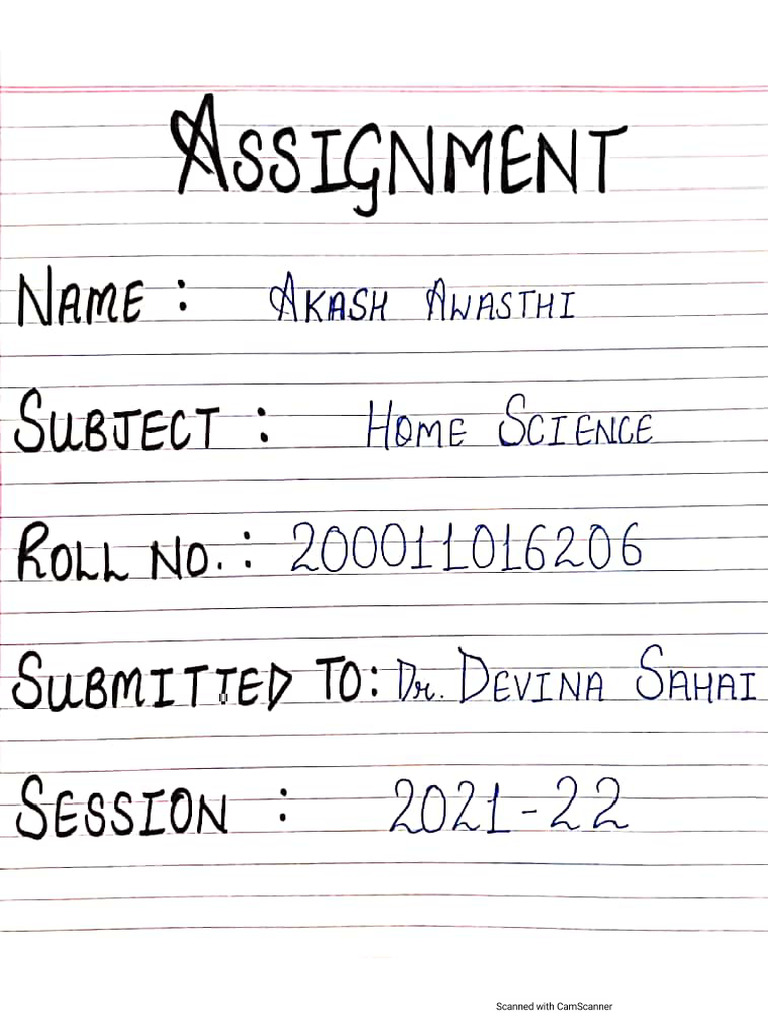 ASSIGNMENT
NAME : AKASH AWASTHI
SUBJECT : HOME SCIENCE
ROLL NO. : 200011016206
SUBMITTED TO : Dr. DEVINA SAHAI
SESSION : 2021-22
Scanned with CamScanner